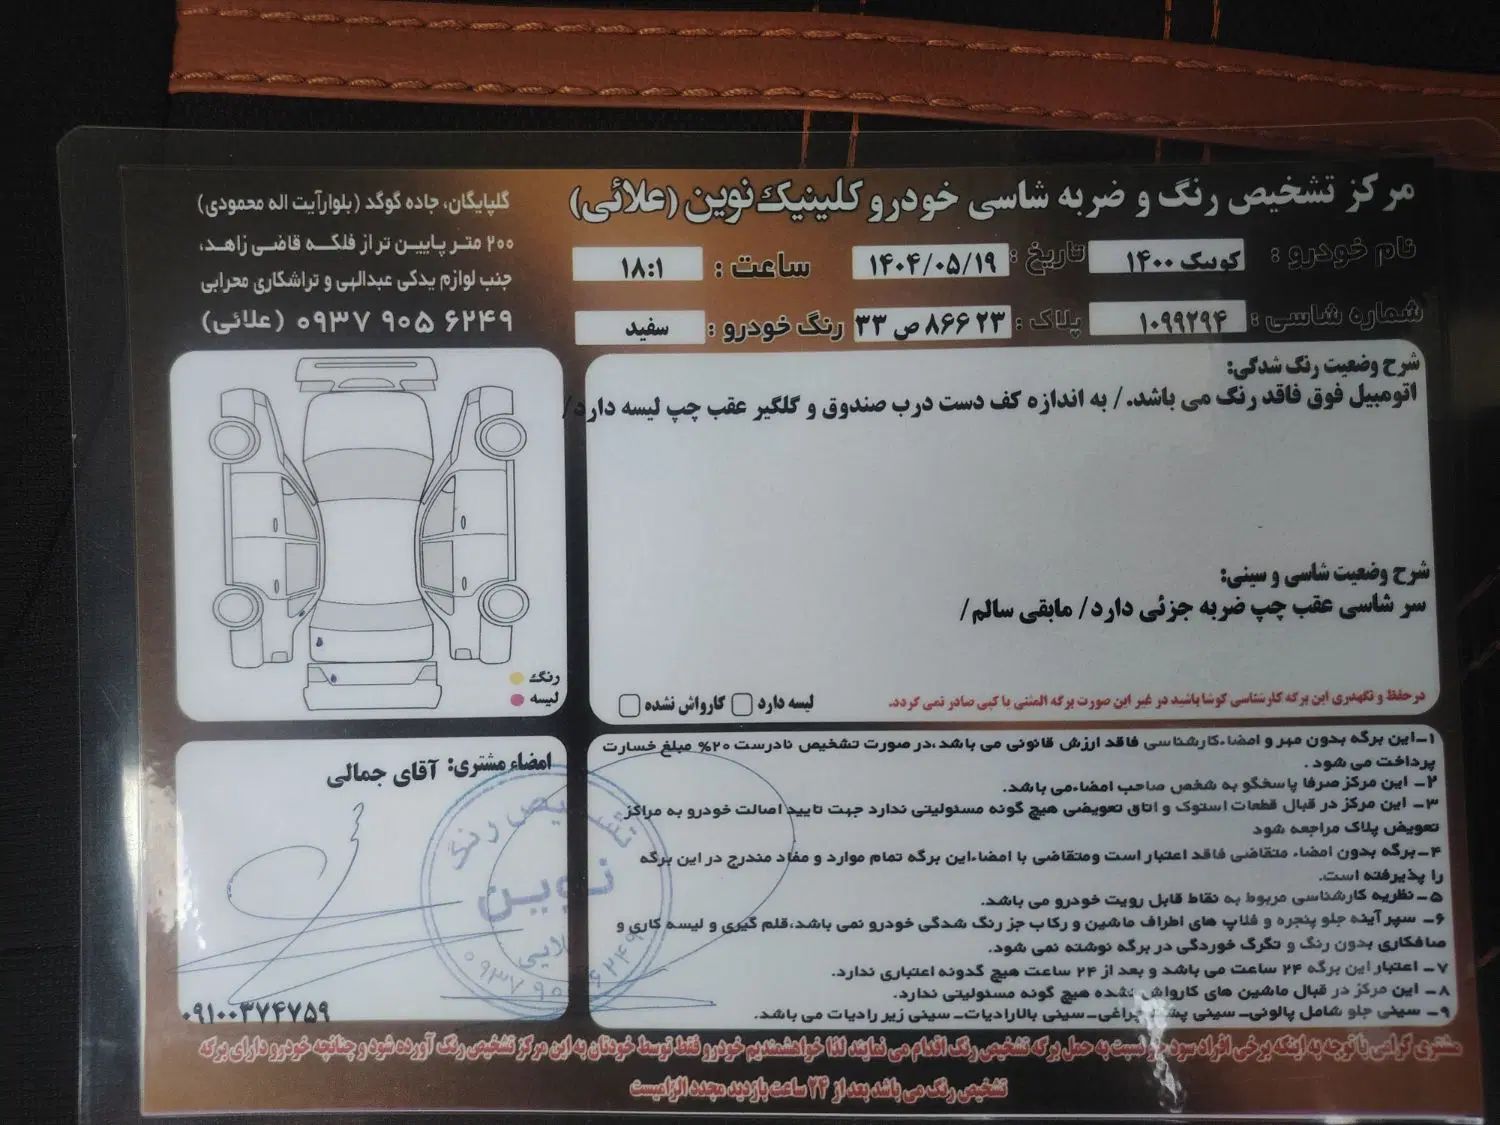 مرکز تشخیص رنگ و ضربه شاسی خودرو کلینیک نوین (علائی)
گلپایگان، جاده گوگد (بلوار آیت اله محمودی)
۲۰۰ متر پایین تر از فلکه قاضی زاهد،
جنب لوازم یدکی عبدالهی و تراشکاری محرابی
۰۹۳۷ ۹۰۵ ۶۲۴۹ (علائی)
نام خودرو : کوییک ۱۴۰۰ تاریخ : ۱۴۰۴/۰۵/۱۹ ساعت : ۱۸:۱
شماره شاسی : ۱۰۹۹۲۹۴ پلاک : ۲۳ ۸۶۶ ص ۳۳ رنگ خودرو : سفید
شرح وضعیت رنگ شدگی:
اتومبیل فوق فاقد رنگ می باشد. / به اندازه کف دست درب صندوق و گلگیر عقب چپ لیسه دارد/
شرح وضعیت شاسی و سینی:
سر شاسی عقب چپ ضربه جزئی دارد/ مابقی سالم/
در حفظ و نگهدری این برگه کارشناسی کوشا باشید در غیر این صورت برگه المثنی یا کپی صادر نمی گردد.
لیسه دارد کارواش نشده
رنگ
لیسه
۱-این برگه بدون مهر و امضاء کارشناسی فاقد ارزش قانونی می باشد،در صورت تشخیص نادرست ۲۰% مبلغ خسارت
پرداخت می شود .
۲- این مرکز صرفا پاسخگو به شخص صاحب امضاءمی باشد.
۳- این مرکز در قبال قطعات استوک و اتاق تعویضی هیچ گونه مسئولیتی ندارد جهت تایید اصالت خودرو به مراکز
تعویض پلاک مراجعه شود
۴-برگه بدون امضاء متقاضی فاقد اعتبار است ومتقاضی با امضاءاین برگه تمام موارد و مفاد مندرج در این برگه
را پذیرفته است.
۵- نظریه کارشناسی مربوط به نقاط قابل رویت خودرو می باشد.
۶- سپر آینه جلو پنجره و فلاپ های اطراف ماشین و رکاب جز رنگ شدگی خودرو نمی باشد،قلم گیری و لیسه کاری و
صافکاری بدون رنگ و تگرگ خوردگی در برگه نوشته نمی شود.
۷- اعتبار این برگه ۲۴ ساعت می باشد و بعد از ۲۴ ساعت هیچ گدونه اعتباری ندارد.
۸- این مرکز در قبال ماشین های کارواش نشده هیچ گونه مسئولیتی ندارد.
۹- سینی جلو شامل پالونی- سینی پشت چراغی- سینی بالارادیات- سینی زیر رادیات می باشد.
امضاء مشتری: آقای جمالی
تشخیص رنگ
نوین
علایی
۰۹۳۷ ۹۰۵ ۶۲۴۹
۰۹۱۰۰۳۷۴۷۵۹
مشتری گرامی با توجه به اینکه برخی افراد سودجو نسبت به حمل برگه تشخیص رنگ اقدام می نمایند لذا خواهشمندیم خودرو فقط توسط خودتان به این مرکز تشخیص رنگ آورده شود و چنانچه خودرو دارای برگه
تشخیص رنگ می باشد بعد از ۲۴ ساعت بازدید مجدد الزامیست